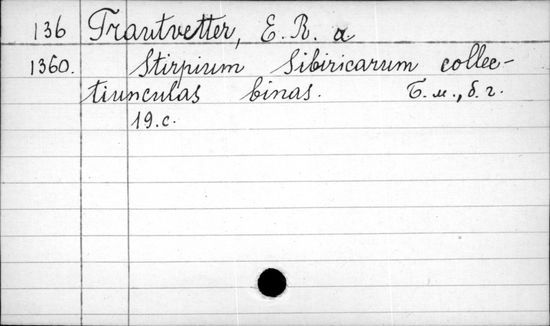 136 Trautvetter, E. R. a
1360. Stirpium Sibiricarum collec-
tiunculas binas. Б. м., б. г.
19. с.